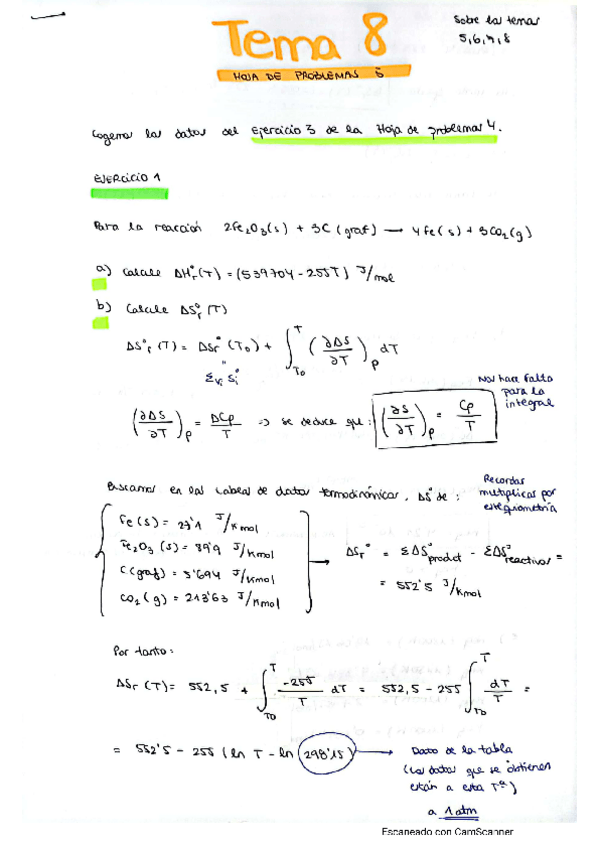 Tema 8
Sobre los temas
5,6,7,8
HOJA DE PROBLEMAS 5
Cogemos los datos del Ejercicio 3 de la Hoja de problemas 4.
EJERCICIO 1
Para la reacción 2Fe₂O₃(s) + 3C (graf) → 4Fe(s) + 3CO₂(g)
a) Calcule ΔH°r(T) = (539704 - 255T) J/mol
b) Calcule ΔS°r(T)
ΔS°r (T) = ΔSr°(T₀) + ∫_{T₀}^{T} (∂ΔS/∂T)_p dT
"
Σνᵢ Sᵢ°
Nos hace falta
para la
integral
(∂ΔS/∂T)_p = ΔCp/T => se deduce que: (∂S/∂T)_p = Cp/T
Buscamos en las tablas de datos termodinámicos, ΔS° de:
Recordar
multiplicar por
estequiometría
Fe(s) = 27'1 J/Kmol
Fe₂O₃(s) = 89'9 J/Kmol
C(graf) = 5'694 J/Kmol
CO₂(g) = 213'63 J/Kmol
→ ΔSr° = ΣΔS°product - ΣΔS°reactivos =
= 552'5 J/Kmol
Por tanto:
ΔSr (T) = 552,5 + ∫_{T0}^{T} -255/T dT = 552,5 - 255 ∫_{T0}^{T} dT/T =
= 552'5 - 255 (ln T - ln 298'15) → Datos de la tabla
(Los datos que se obtienen
están a esta Tª)
a 1 atm
Escaneado con CamScanner